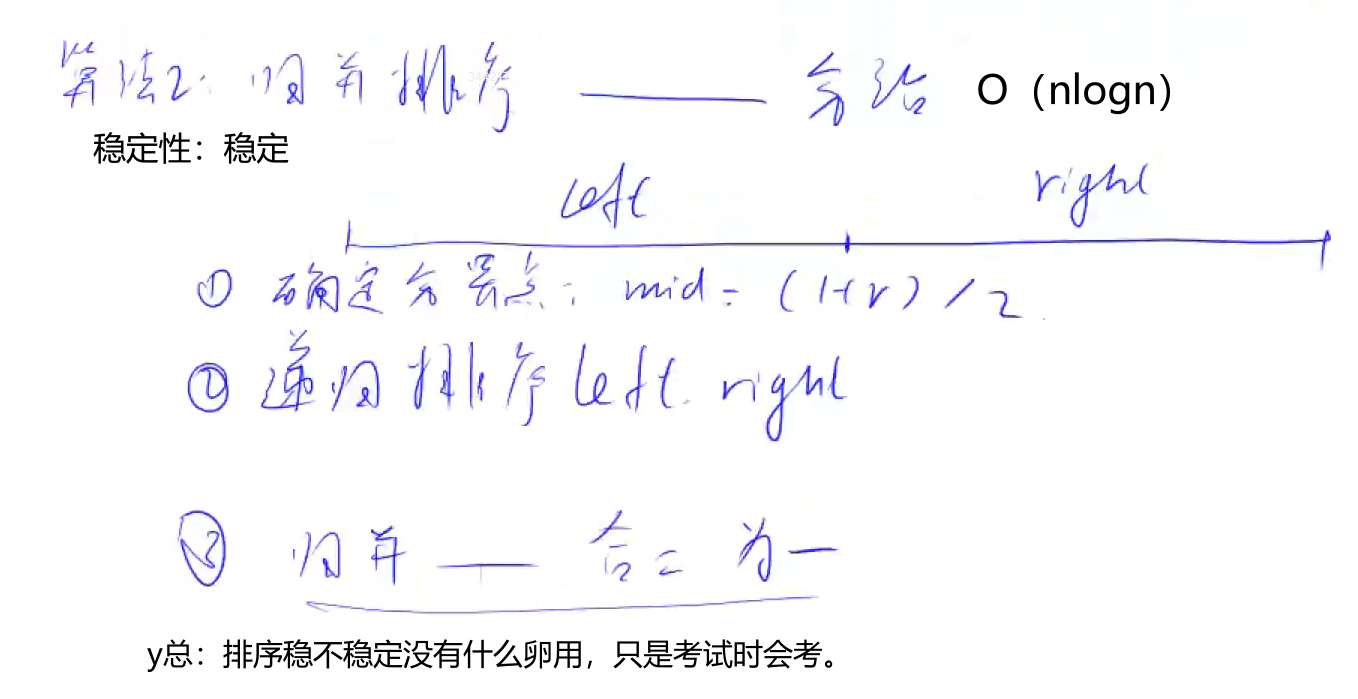 算法2：归并排序 —— 分治 O（nlogn）
稳定性：稳定
left right
① 确定分界点：mid = (l+r)/2
② 递归排序left right
③ 归并 —— 合二为一
y总：排序稳不稳定没有什么卵用，只是考试时会考。